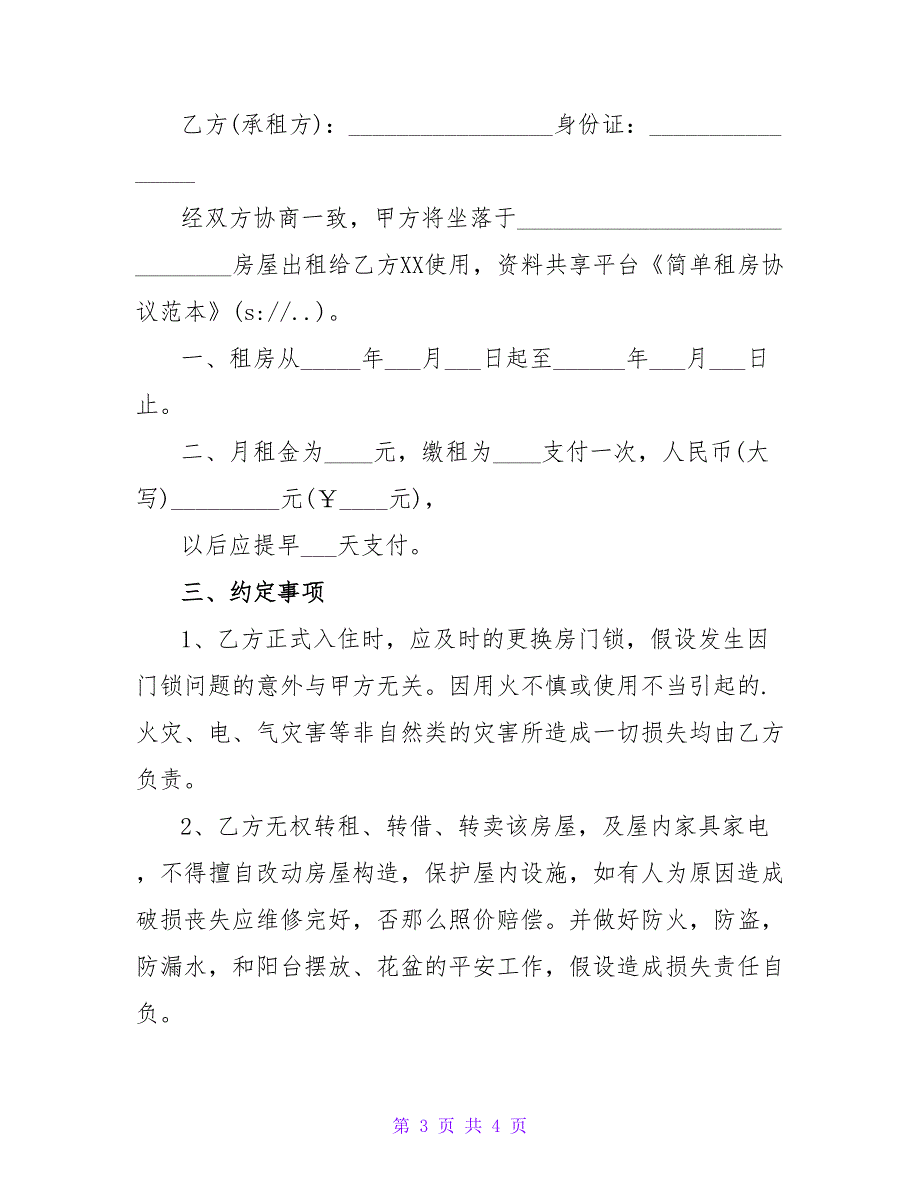 乙方(承租方)：_________________身份证：___________
_____
经双方协商一致，甲方将坐落于______________________
________房屋出租给乙方XX使用，资料共享平台《简单租房协
议范本》(s://..)。
一、租房从_____年___月___日起至______年___月___日
止。
二、月租金为____元，缴租为____支付一次，人民币(大
写)_________元(￥____元)，
以后应提早___天支付。
三、约定事项
1、乙方正式入住时，应及时的更换房门锁，假设发生因
门锁问题的意外与甲方无关。因用火不慎或使用不当引起的.
火灾、电、气灾害等非自然类的灾害所造成一切损失均由乙方
负责。
2、乙方无权转租、转借、转卖该房屋，及屋内家具家电
，不得擅自改动房屋构造，保护屋内设施，如有人为原因造成
破损丧失应维修完好，否那么照价赔偿。并做好防火，防盗，
防漏水，和阳台摆放、花盆的平安工作，假设造成损失责任自
负。
第 3 页 共 4 页